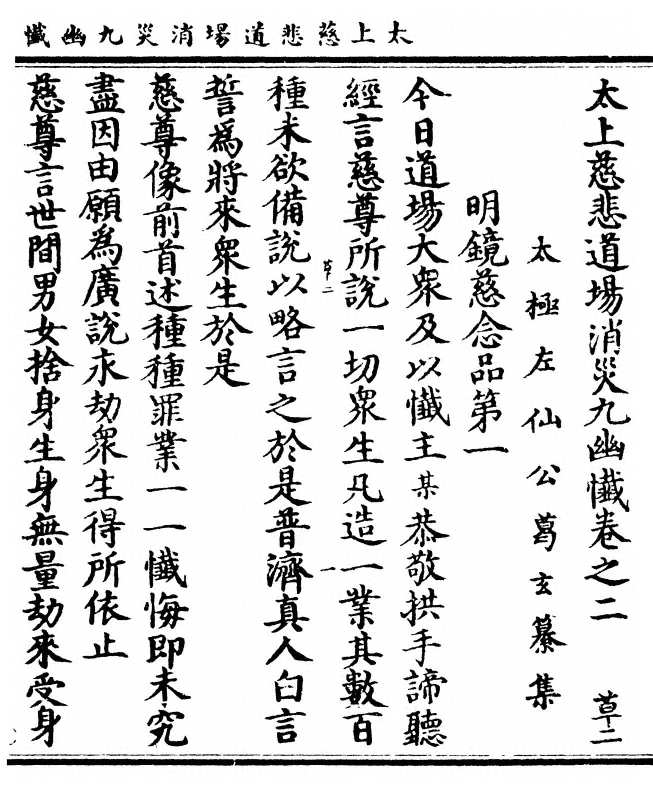 太上慈悲道場消災九幽懺
太上慈悲道場消災九幽懺卷之二 草二
太極左仙公葛玄纂集
明鏡慈念品第一
今日道場大眾及以懺主某恭敬拱手諦聽
經言慈尊所說一切眾生凡造一業其數百
草二 一
種未欲備說以略言之於是普濟真人白言
誓為將來眾生於是
慈尊像前首述種種罪業一一懺悔即未究
盡因由願為廣說永劫眾生得所依止
慈尊言世間男女捨身生身無量劫來受身